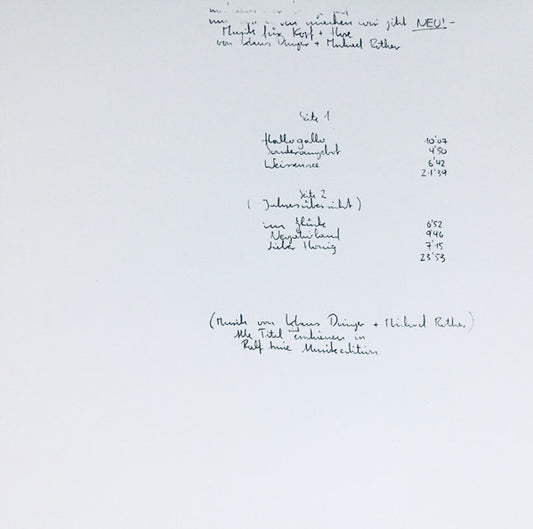 wir jetzt NEU! -
Musik für Kopf + Hose
von Klaus Dinger + Michael Rother
Seite 1
Hallogallo 10'07
Sonderangebot 4'50
Weissensee 6'42
21'39
Seite 2
( Jahresübersicht )
im Glücke 6'52
Negativland 9'46
Lieber Honig 7'15
23'53
(Musik von Klaus Dinger + Michael Rother)
Alle Titel erschienen in
Ralf Musikedition